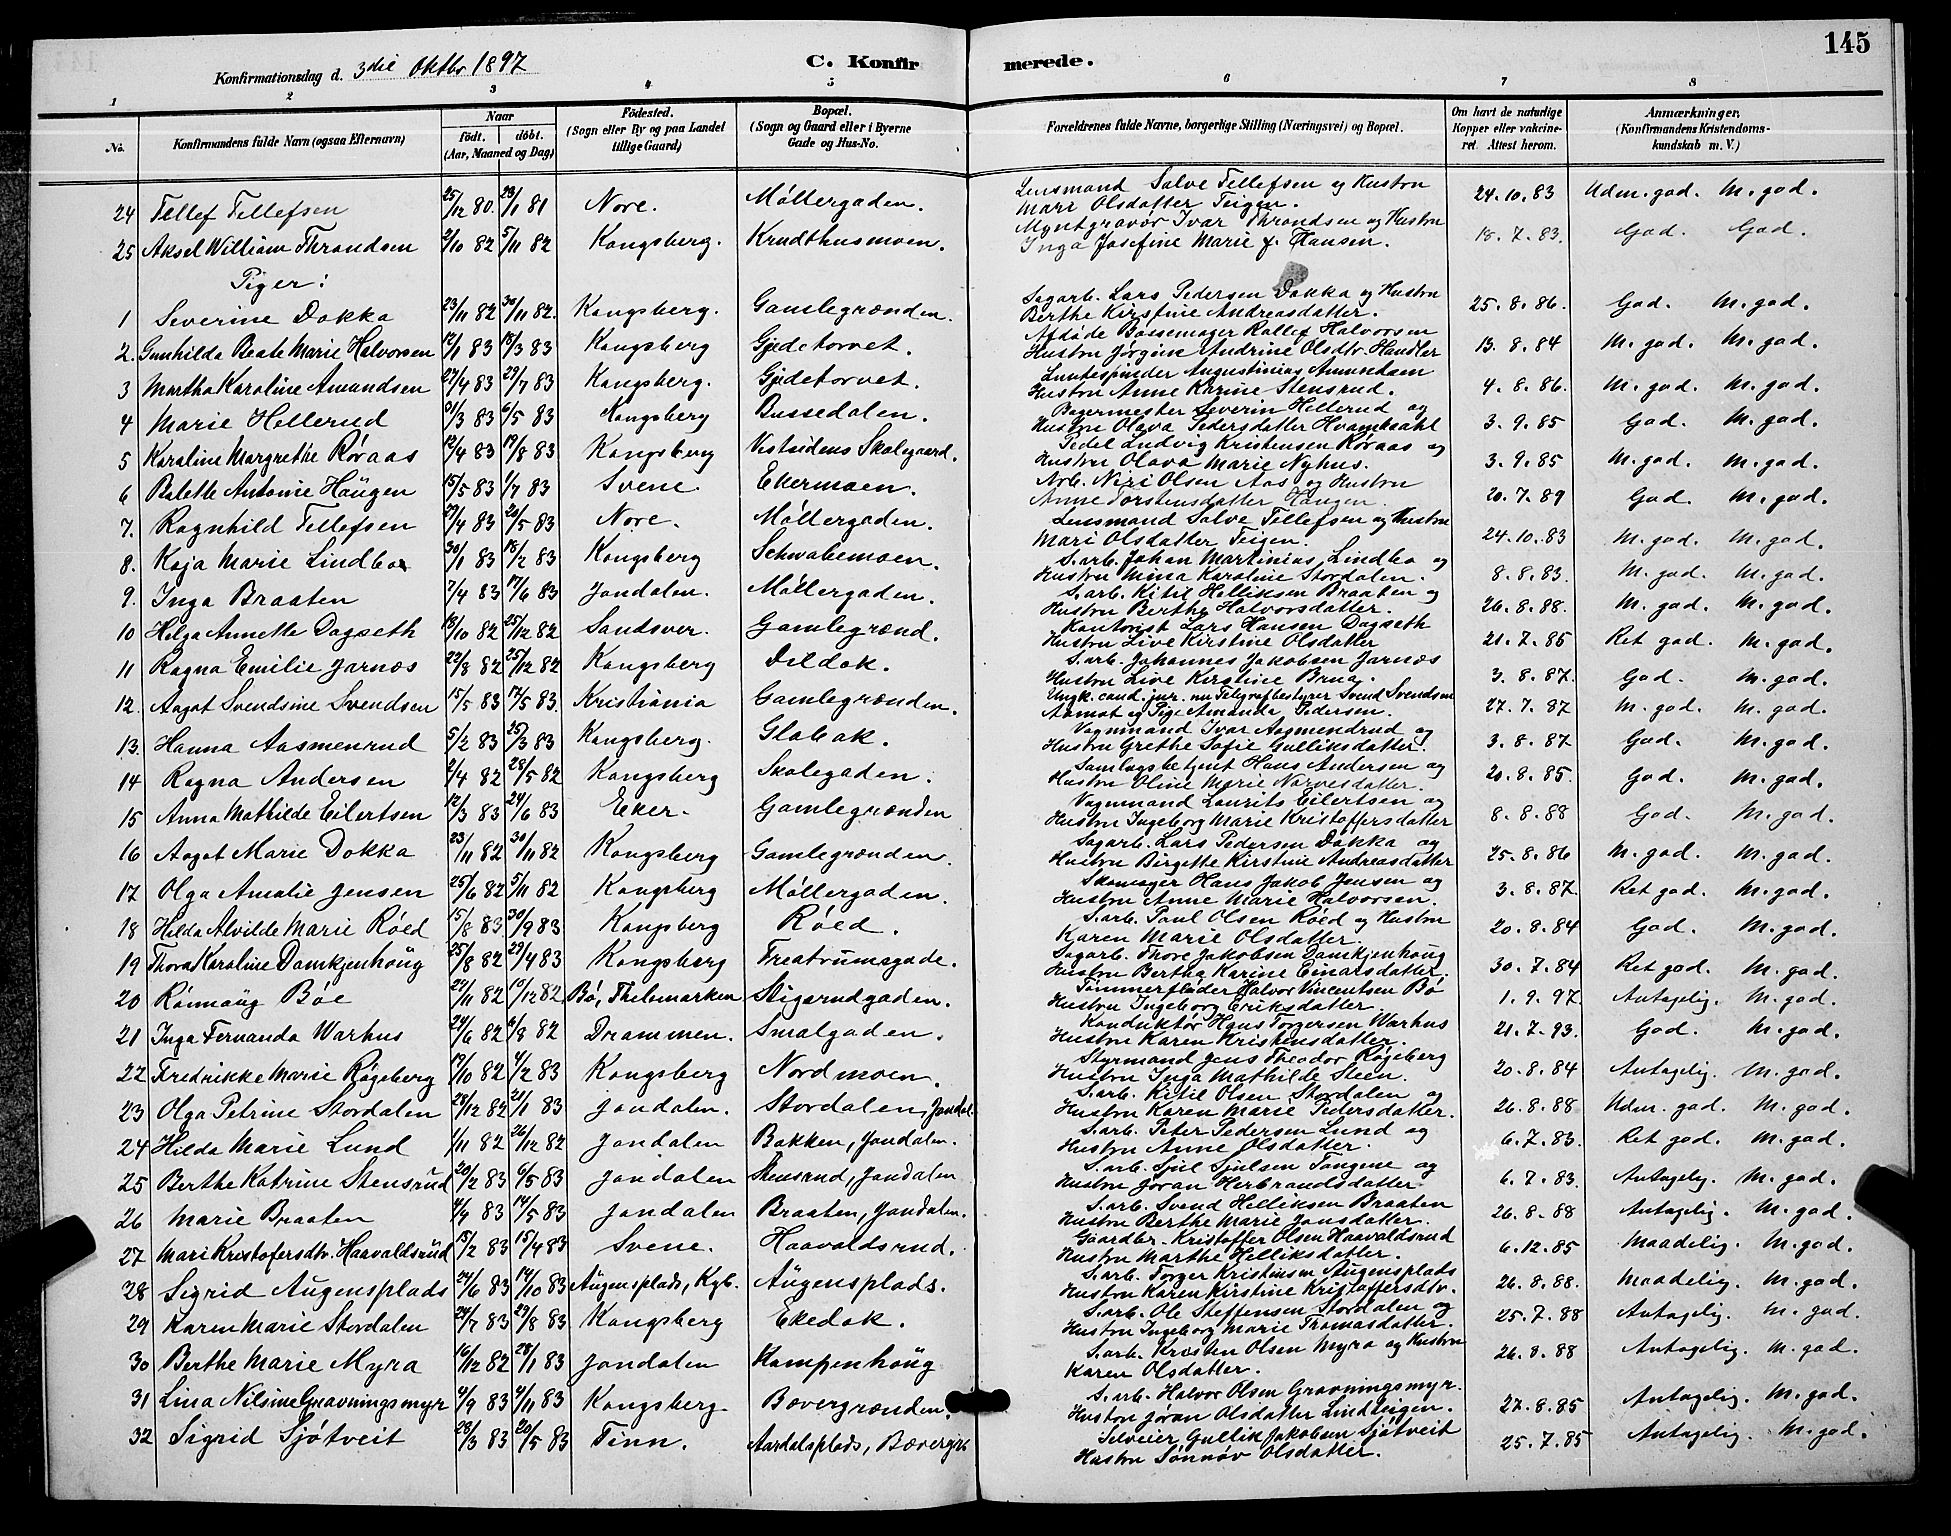 145
Konfirmationsdag d. 3die Oktbr 1897 C. Konfirmerede.
1 2 3 4 5 6 7 8
No. Konfirmandens fulde Navn (ogsaa Efternavn) Naar födt. döbt. (Aar, Maaned og Dag) Födested. (Sogn eller By og paa Landet tillige Gaard) Bopæl. (Sogn og Gaard eller i Byerne Gade og Hus-No. Forældrenes fulde Navne, borgerlige Stilling (Næringsvei) og Bopæl. Om havt de naturlige Kopper eller vakcineret. Attest herom. Anmærkninger. (Konfirmandens Kristendomskundskab m. V.)
24 Tellef Tellefsen 25/12 80. 23/1 81 Nore. Möllergaden. Lensmand Salve Tellefsen og Hustru Mari Olsdatter Teigen. 24.10.83 Udm. god. M. god.
25 Aksel William Thrandsen 2/10 82 5/11 82 Kongsberg. Krudthusmoen. Myntgravör Ivar Thrandsen og Hustru Inga Josefine Marie f. Hansen. 18.7.83. God. God.
Piger:
1 Severine Dokka 23/11 82 30/11 82. Kongsberg. Gamlegrænden. Sagarb. Lars Pedersen Dokka og Hustru Berthe Kirstine Andreasdatter. 25.8.86. God. M. god.
2. Gunhilda Beate Marie Halvorsen 12/1 83 18/3 83 Kongsberg Gjedetorvet. Afdöde Bössemager Rollef Halvorsen Hustru Jörgine Andrine Olsdtr. Handler 13.8.84 M. god. M. god.
3 Martha Karoline Amundsen 27/4 83 29/7 83 Kongsberg. Gjedetorvet. Luntespinder Augustinius Amundsen Hustru Anne Karine Stensrud. 4.8.86. M. god. M. god.
4 Marie Hellerud 31/3 83 6/5 83 Kongsberg Bussedalen. Bagermester Severin Hellerud og Hustru Olava Pedersdatter Hvambsahl 3.9.85 God. M. god.
5 Karoline Margrethe Röraas 12/4 83 19/8 83 Kongsberg Vestsidens Skolegaard. Pedel Ludvig Kristensen Röraas og Hustru Olava Marie Nyhus. 3.9.85 M. god. M. god.
6 Bolette Antonie Haugen 15/5 83 1/7 83 Svene. Ekermoen. Arb. Niri Olsen Aas og Hustru Anne Torstensdatter Haugen. 20.7.89 God. M. god.
7. Ragnhild Tellefsen 27/4 83 20/5 83 Nore. Möllergaden. Lensmand Salve Tellefsen og Hustru Mari Olsdatter Teigen. 24.10.83 M. god. M. god.
8. Kaja Marie Lindbo 30/1 83 18/2 83 Kongsberg Schwabemoen. S. arb. Johan Martinius Lindbo og Hustru Mina Karoline Stordalen. 8.8.83. M. god. M. god.
9. Inga Braaten 7/4 83 17/6 83 Jondalen. Möllergaden. S. arb. Kitil Helliksen Braaten og Hustru Berthe Halvorsdatter. 26.8.88. M. god. M. god.
10 Helga Annette Dagseth 18/10 82 25/12 82 Sandsver. Gamlegrænd. Kontorist Lars Hansen Dagseth Hustru Live Kirstine Olsdatter 21.7.85 Ret god. M. god.
11 Ragna Emilie Jarnæs 22/8 82 25/12 82 Kongsberg Dildok. S. arb. Johannes Jakobsen Jarnæs Hustru Live Kirstine Brua. 3.8.87. God. M. god.
12. Aagot Svendsine Svendsen 15/5 83 17/5 83. Kristiania Gamlegrænden. Ungk. cand. jur. nu Telegrafbestyrer Svend Svendsen Aamot og Pige Amanda Pedersen. 27.7.87 M. god. M. god.
13. Hanna Aasmenrud 5/2 83 25/3 83 Kongsberg. Glabak. Vognmand Ivar Aasmendrud og Hustru Grethe Sofie Gulliksdatter. 3.8.87 God. M. god.
14 Ragna Andersen 2/4 82 28/5 82 Kongsberg Skolegaden. Samlagsbetjent Hans Andersen og Hustru Oline Marie Narvesdatter. 20.8.85. God. M. god.
15 Anna Mathilde Eilertsen 12/3 83 24/6 83 Eker. Gamlegrænden Vognmand Laurits Eilertsen og Hustru Ingeborg Marie Kristoffersdatter 8.8.88 God. M. god.
16 Aagot Marie Dokka 23/11 82 30/11 82 Kongsberg Gamlegrænden. Sagarb. Lars Pedersen Dokka og Hustru Birgitte Kirstine Andreasdatter 25.8.86 M. god. M. god.
17 Olga Amalie Jensen 25/6 82 5/11 82 Kongsberg Möllergaden. Skomager Hans Jakob Jensen og Hustru Anne Marie Halvorsen. 3.8.87. Ret god. M. god.
18 Hilda Alvilde Marie Röed 15/8 83 30/9 83 Kongsberg Röed. S. arb. Paul Olsen Röed og Hustru Karen Marie Olsdatter. 20.8.84 God. M. god.
19 Thora Karoline Damkjenhöug 25/8 82 29/4 83 Kongsberg Treatrumsgade. Sagarb. Thore Jakobsen Damkjenhöug Hustru Berthe Karine Einarsdatter. 30.7.84 Ret god. M. god.
20 Rönnaug Böe 29/11 82 10/12 82 Bö, Thelemarken Stigsrudgaden. Tömmerfløder Halvor Vincentsen Bö Hustru Ingeborg Eriksdatter. 1.9.97. Antagelig. M. god.
21 Inga Fernanda Warhus 24/6 82 6/8 82 Drammen. Smalgaden. Konduktör Hans Torgersen Warhus Hustru Karen Kristensdatter. 21.7.93. God. M. god.
22 Fredrikke Marie Rögeberg 19/10 82 4/2 83 Kongsberg Nordmoen. Styrmand Jens Theodor Rögeberg Hustru Inga Mathilde Steen. 20.8.84 Antagelig. M. god.
23 Olga Petrine Stordalen 28/12 82 21/1 83 Jondalen. Stordalen, Jondal. S. arb. Kitil Olsen Stordalen og Hustru Karen Marie Pedersdatter. 26.8.88 Udm. god. M. god.
24 Hilda Marie Lund 1/11 82 26/12 82 Jondalen Bakken, Jondalen. S. arb. Peter Pedersen Lund og Hustru Anne Olsdatter. 6.7.83. Ret god. M. god.
25 Berthe Katrine Stensrud 20/2 83 6/5 83 Jondalen Stensrud, Jondalen S. arb. Sjul Sjulsen Tangene og Hustru Jöran Herbrandsdatter 6.7.83. Antagelig. M. god.
26 Marie Braaten 4/4 83 14/5 83 Jondalen Braaten, Jondalen. S. arb. Svend Helliksen Braaten Hustru Berthe Marie Jonsdatter. 26.8.88 Antagelig. M. god.
27 Mari Kristofersdtr. Haavaldsrud 15/2 83 15/4 83 Svene. Haavaldsrud. Gaardbr. Kristoffer Olsen Haavaldsrud Hustru Marthe Helliksdatter. 6.12.85 Maadelig. M. god.
28 Sigrid Augensplads 24/6 83 14/10 83 Augensplads, Kgb. Augensplads. S. arb. Torger Kristensen Augensplads Hustru Karen Kirstine Kristoffersdtr. 26.8.88. Maadelig. M. god.
29 Karen Marie Stordalen 24/7 83 29/8 83 Kongsberg Ekedok. S. arb. Ole Steffensen Stordalen og Hustru Ingeborg Marie Tromasdatter. 25.7.88 Antagelig. M. god.
30 Berthe Marie Myra 16/12 82 28/1 83 Jondalen Kampenhöug S. arb. Kristen Olsen Myra og Hustru Karen Olsdatter. 26.8.88 Antagelig. M. god.
31 Lina Nilsine Gravningsmyr 4/9 83 4/11 83 Kongsberg. Bævergrænden. S. arb. Halvor Olsen Gravningsmyr. Hustru Jöran Olsdatter Lindteigen. 27.8.85 Antagelig. M. god.
32 Sigrid Sjötveit 28/3 83 20/5 83 Tinn. Aardalsplads, Bævergr. Selveier Gullik Jakobsen Sjötveit Hustru Sönnöv Olsdatter. 25.7.85 Antagelig. M. god.